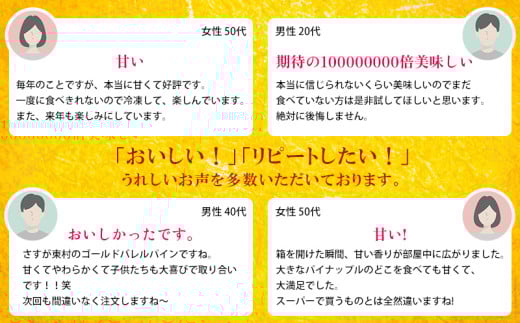 女性 50代
甘い
毎年のことですが、本当に甘くて好評です。
一度に食べきれないので冷凍して、楽しんでいます。
また、来年も楽しみにしています。
男性 20代
期待の100000000倍美味しい
本当に信じられないくらい美味しいのでまだ
食べていない方は是非試してほしいと思います。
絶対に後悔しません。
「おいしい！」「リピートしたい！」
うれしいお声を多数いただいております。
男性 40代
おいしかったです。
さすが東村のゴールドバレルパインですね。
甘くてやわらかくて子供たちも大喜びで取り合い
です！！笑
次回も間違いなく注文しますね〜
女性 50代
甘い!
箱を開けた瞬間、甘い香りが部屋中に広がりました。
大きなパイナップルのどこを食べても甘くて、
大満足でした。
スーパーで買うものとは全然違いますね!